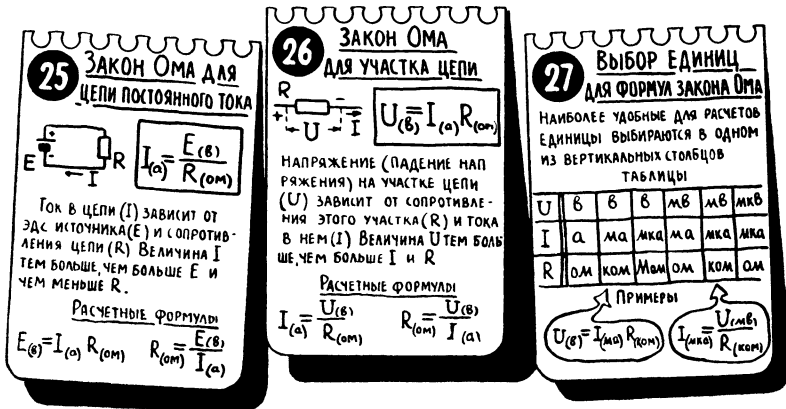 25
Закон Ома для
цепи постоянного тока
+
-
E
R
I
I(а) = E(в) / R(ом)
Ток в цепи (I) зависит от
эдс источника(E) и сопротив-
ления цепи (R) Величина I
тем больше, чем больше E и
чем меньше R.
Расчетные формулы
E(в) = I(а) R(ом)
R(ом) = E(в) / I(а)
26
Закон Ома
для участка цепи
R
+
-
U
I
U(в) = I(а) R(ом)
Напряжение (падение нап
ряжения) на участке цепи
(U) зависит от сопротивле-
ния этого участка (R) и тока
в нем (I) Величина U тем боль
ше, чем больше I и R
Расчетные формулы
I(а) = U(в) / R(ом)
R(ом) = U(в) / I(а)
27
Выбор единиц
для формул закона Ома
Наиболее удобные для расчетов
единицы выбираются в одном
из вертикальных столбцов
таблицы
U в в в мв мв мкв
I а ма мка ма мка мка
R ом ком Мом ом ком ом
Примеры
U(в) = I(ма) R(ком)
I(мка) = U(мв) / R(ком)